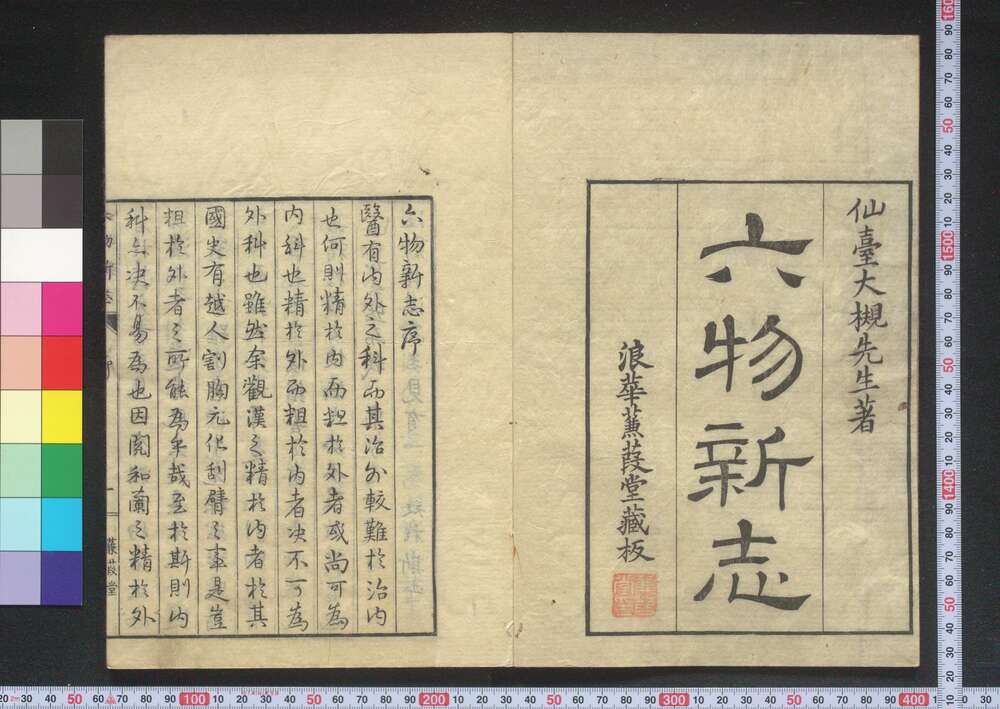 仙臺大槻先生著
六物新志
浪華蒹葭堂藏板
六物新志序
醫有内外之科而其治外較難於治内
也何則精於内而粗於外者或尚可為
内科也精於外而粗於内者决不可為
外科也雖然余觀漢之精於内者於其
國史有越人割胸元化刮臂之事是豈
粗於外者之所能為乎哉至於斯則内
科亦决不易為也因閲和蘭之精於外
蒹葭堂